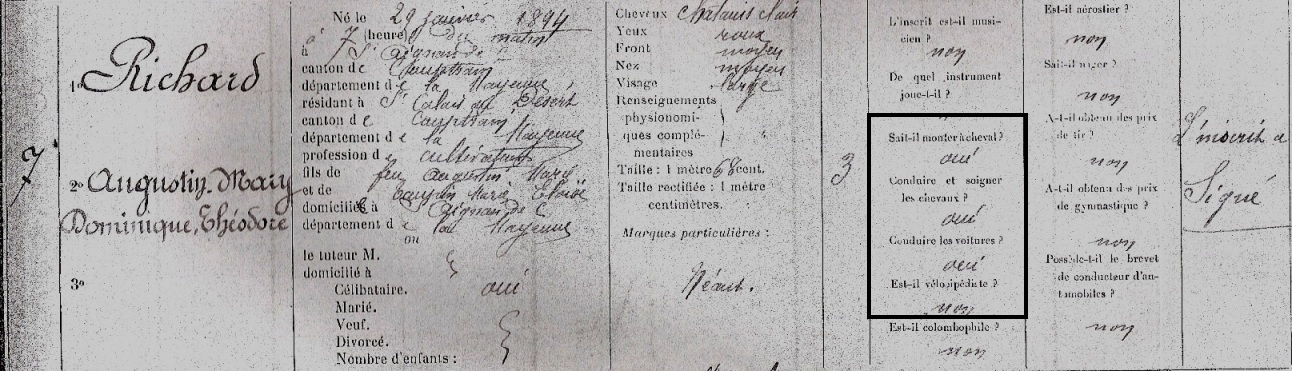 7
1º Richard
2º Augustin, Mary
Dominique, Théodore
3º
Né le 29 janvier 1894
à 7 (heure) du matin
à St Aignan de
canton de Couptrain
département de la Mayenne
résidant à St Calais du Désert
canton de Couptrain
département de la Mayenne
profession de cultivateur
fils de feu Augustin Marie
et de Marie
domiciliés à St Aignan de C
département de la Mayenne
ou
le tuteur M.
domicilié à
Célibataire. oui
Marié.
Veuf.
Divorcé.
Nombre d'enfants :
Cheveux chatains clairs
Yeux roux
Front moyen
Nez moyen
Visage large
Renseignements
physionomi-
ques complé-
mentaires
Taille : 1 mètre 68 cent.
Taille rectifiée : 1 mètre
centimètres.
Marques particulières :
Néant.
3
L'inscrit est-il musi-
cien ?
non
De quel instrument
joue-t-il ?
"
Sait-il monter à cheval ?
oui
Conduire et soigner
les chevaux ?
oui
Conduire les voitures ?
oui
Est-il vélocipédiste ?
non
Est-il colombophile ?
non
Est-il aérostier ?
non
Sait-il nager ?
non
A-t-il obtenu des prix
de tir ?
non
A-t-il obtenu des prix
de gymnastique ?
non
Possède-t-il le brevet
de conducteur d'au-
tomobiles ?
non
L'inscrit a
Signé